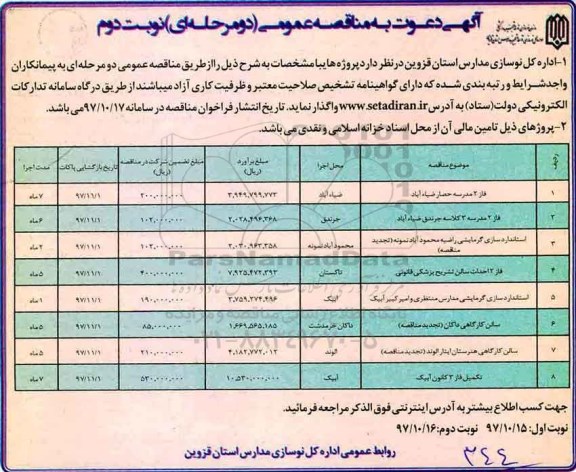 آگهی دعوت به مناقصه عمومی (دو مرحله‌ای) نوبت دوم
۱-اداره کل نوسازی مدارس استان قزوین در نظر دارد پروژه هایبا مشخصات به شرح ذیل را از طریق مناقصه عمومی دو مرحله ای به پیمانکاران
واجد شرایط و رتبه بندی شده که دارای گواهینامه تشخیص صلاحیت معتبر و ظرفیت کاری آزاد میباشند از طریق درگاه سامانه تدارکات
الکترونیکی دولت (ستاد) به آدرس www.setadiran.ir واگذار نماید. تاریخ انتشار فراخوان مناقصه در سامانه ۹۷/۱۰/۱۷ می باشد.
۲-پروژهای ذیل تامین مالی آن از محل اسناد خزانه اسلامی و نقدی می باشد.
ردیف موضوع مناقصه محل اجرا مبلغ برآورد (ریال) مبلغ تضمین شرکت در مناقصه (ریال) تاریخ بازگشایی پاکات مدت اجرا
۱ فاز ۲ مدرسه حصار ضیاء آباد ضیاء آباد ۳,۹۴۹,۷۹۹,۷۷۳ ۲۰۰,۰۰۰,۰۰۰ ۹۷/۱۱/۱ ۷ماه
۲ فاز ۲ مدرسه ۳ کلاسه جرندق ضیاء آباد جرندق ۲,۰۲۸,۴۹۶,۳۶۸ ۱۰۲,۰۰۰,۰۰۰ ۹۷/۱۱/۱ ۶ماه
۳ استاندارد سازی گرمایشی راضیه محمودآباد نمونه (تجدید مناقصه) محمود آباد نمونه ۲,۰۳۰,۹۶۳,۳۵۸ ۱۰۲,۰۰۰,۰۰۰ ۹۷/۱۱/۱ ۲ماه
۴ فاز ۲ احداث سالن تشریح پزشکی قانونی تاکستان ۷,۹۲۵,۴۷۲,۳۹۳ ۴۰۰,۰۰۰,۰۰۰ ۹۷/۱۱/۱ ۵ماه
۵ استاندارد سازی گرمایشی مدارس منتظری و امیر کبیر آبیک آبیک ۲,۷۵۹,۲۷۴,۴۹۶ ۱۹۰,۰۰۰,۰۰۰ ۹۷/۱۱/۱ ۱ماه
۶ سالن کارگاهی داکان (تجدید مناقصه) داکان خرمدشت ۱,۶۶۹,۵۶۵,۱۸۵ ۸۵,۰۰۰,۰۰۰ ۹۷/۱۱/۱ ۵ماه
۷ سالن کارگاهی هنرستان ایثار الوند (تجدید مناقصه) الوند ۴,۱۸۲,۷۷۲,۰۱۲ ۲۱۰,۰۰۰,۰۰۰ ۹۷/۱۱/۱ ۵ماه
۸ تکمیل فاز ۳ کانون آبیک آبیک ۱۰,۵۳۰,۰۰۰,۰۰۰ ۵۳۰,۰۰۰,۰۰۰ ۹۷/۱۱/۱ ۷ماه
ParsNamadData
۰۲۱-۸۸۳۴۹۶۷۰-۵
جهت کسب اطلاع بیشتر به آدرس اینترنتی فوق الذکر مراجعه فرمائید.
نوبت اول: ۹۷/۱۰/۱۵ نوبت دوم: ۹۷/۱۰/۱۶
روابط عمومی اداره کل نوسازی مدارس استان قزوین
۳۴۴